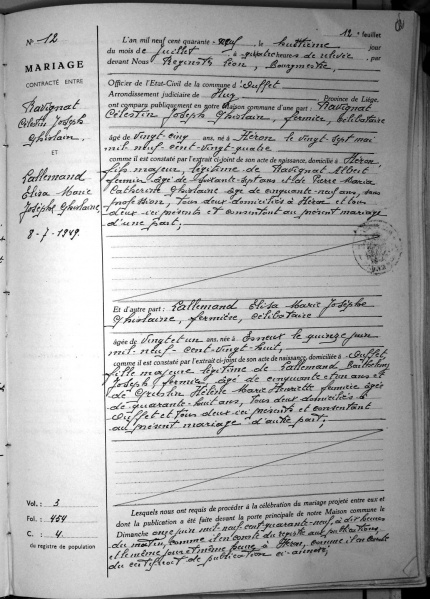 12e feuillet
N° 12
MARIAGE
CONTRACTÉ ENTRE
Ravignat
Célestin Joseph
Ghislain
ET
Lallemand
Elisa Marie
Josèphe Ghislaine
8-7-1949.
L'an mil neuf cent quarante-neuf, le huitième jour
du mois de juillet à heures de relevée, par
devant Nous Léon, Bourgmestre,
Officier de l'Etat-Civil de la commune d'Ouffet
Arrondissement judiciaire de Huy Province de Liége,
ont comparu publiquement en notre Maison commune d'une part: Ravignat
Célestin Joseph Ghislain, fermier, célibataire
âgé de vingt-cinq ans, né à Héron le vingt-sept mai
mil neuf-cent-vingt-quatre
comme il est constaté par l'extrait ci-joint de son acte de naissance, domicilié à Héron,
fils majeur, légitime de Ravignat Albert
fermier âgé de soixante-sept ans et de Pierre Maria
Catherine Ghislaine âgée de cinquante-neuf ans, sans
profession, tous deux domiciliés à Héron et tous
deux ici présents et consentant au présent mariage
d'une part;
Et d'autre part: Lallemand Elisa Marie Josèphe
Ghislaine, fermière, célibataire
âgée de vingt et un ans, née à Esneux le quinze juin
mil-neuf-cent-vingt-huit,
comme il est constaté par l'extrait ci-joint de son acte de naissance, domiciliée à Ouffet,
fille majeure légitime de Lallemand
Joseph, fermier, âgé de cinquante et un ans et
de Hélène Marie Henriette fermière âgée
de quarante-huit ans, tous deux domiciliés à
Ouffet et tous deux ici présents et consentant
au présent mariage d'autre part;
Lesquels nous ont requis de procéder à la célébration du mariage projeté entre eux et
dont la publication a été faite devant la porte principale de notre Maison commune le
Dimanche onze juin mil-neuf-cent quarante-neuf, à dix heures
du matin, comme il en conste du registre aux publications
et le même jour et même heure à Héron, comme il en conste
du certificat de publication ci-annexé,
Vol.: 3
Fol.: 454
C.: 4.
du registre de population